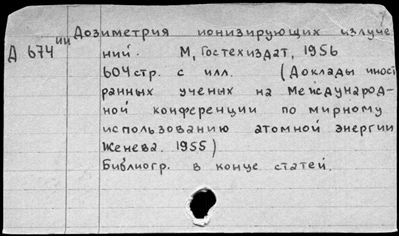 Дозиметрия ионизирующих излуче
ний. М, Гостехиздат, 1956
Д 674 ии
604 стр. с илл. (Доклады иност
ранных ученых на Международ-
ной конференции по мирному
использованию атомной энергии
Женева. 1955)
Библиогр. в конце статей.